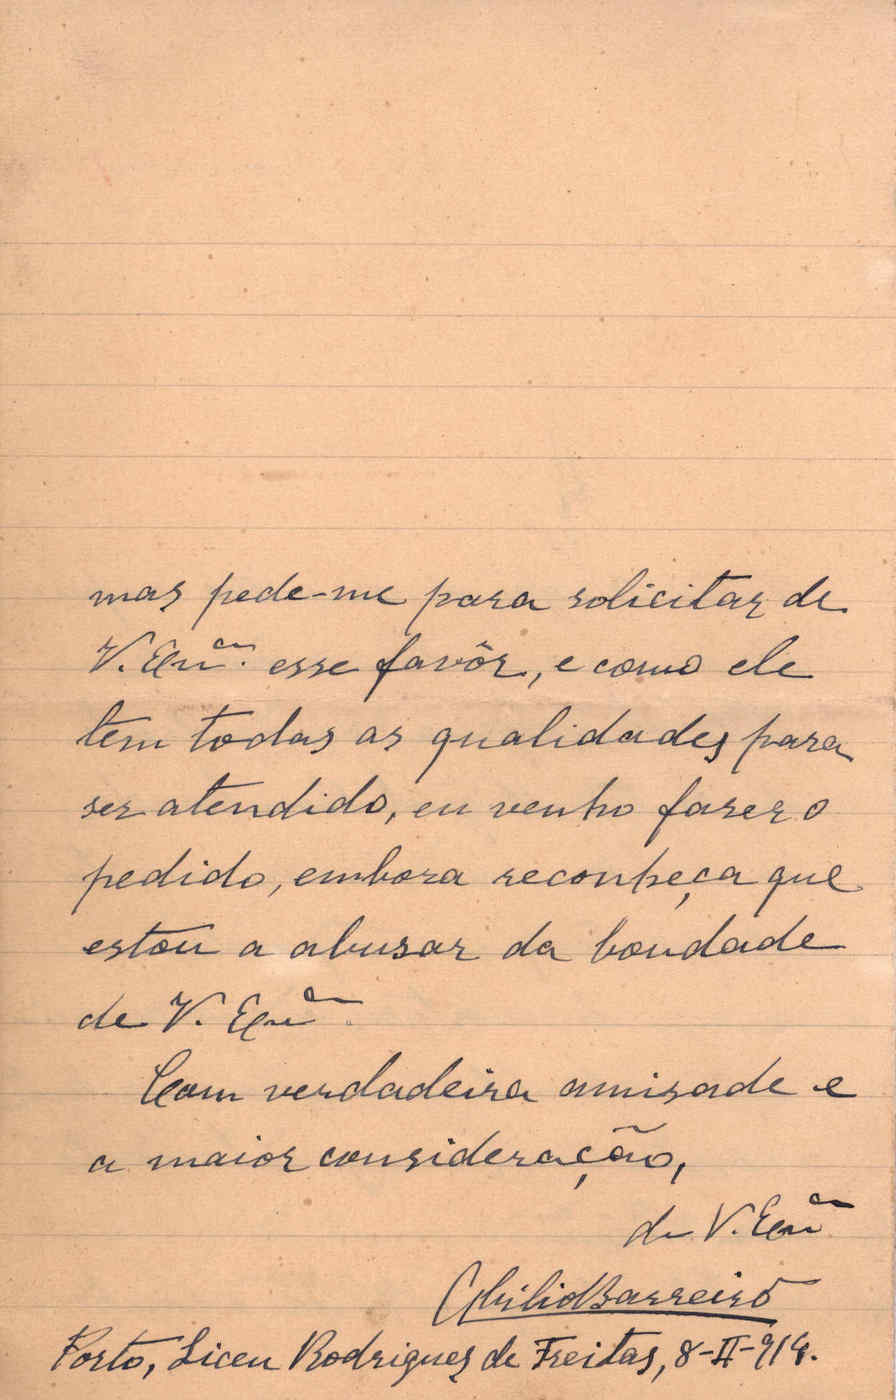 mas pede-me para solicitar de
V. Exª. esse favôr, e como ele
tem todas as qualidades para
ser atendido, eu venho faser o
pedido, embora reconheça que
estou a abusar da bondade
de V. Exª.
Com verdadeira amisade e
a maior consideração,
de V. Exª
Abilio Barreiro
Porto, Liceu Rodrigues de Freitas, 8-II-914.